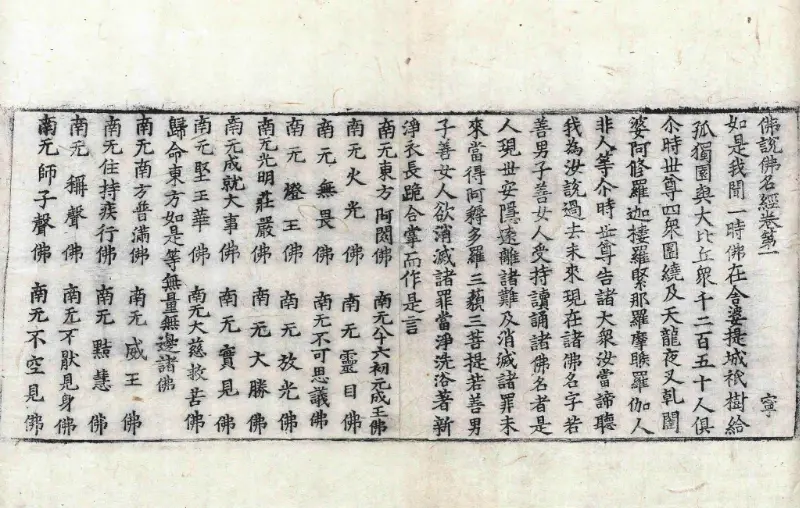 佛說佛名經卷第一 寧
如是我聞一時佛在舍婆提城祇樹給
孤獨園與大比丘衆千二百五十人俱
尒時世尊四衆圍繞及天龍夜叉乹闥
婆阿修羅迦樓羅緊那羅摩睺羅伽人
非人等尒時世尊告諸大衆汝當諦聽
我為汝說過去未來現在諸佛名字若
善男子善女人受持讀誦諸佛名者是
人現世安隱遠離諸難及消滅諸罪未
來當得阿耨多羅三藐三菩提若善男
子善女人欲消滅諸罪當淨洗浴著新
淨衣長跪合掌而作是言
南无東方阿閦佛 南无
南无火光佛 南无靈目佛
南无無畏佛 南无不可思議佛
南无燈王佛 南无放光佛
南无光明莊嚴佛 南无大勝佛
南无成就大事佛 南无實見佛
南无堅王華佛 南无大慈救苦佛
歸命東方如是等無量無邊諸佛
南无南方普滿佛 南无威王佛
南无住持疾行佛 南无點慧佛
南无稱聲佛 南无不猒見身佛
南无師子聲佛 南无不空見佛